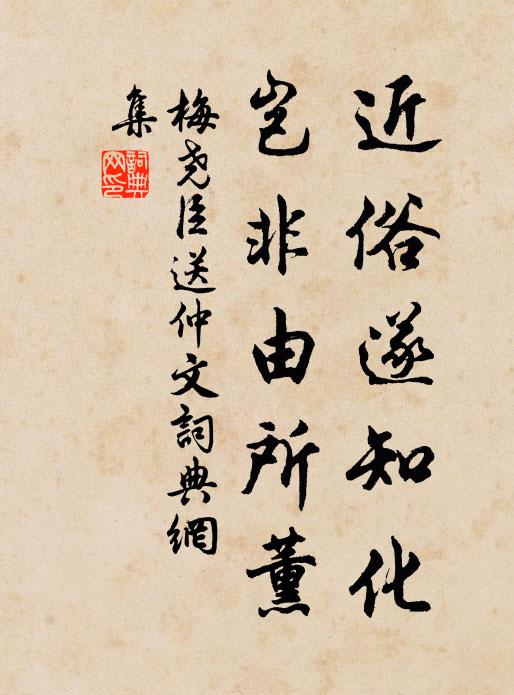 近俗遂知化
岂非由所薰
梅尧臣送仲文詞典網
集
詞典
网印